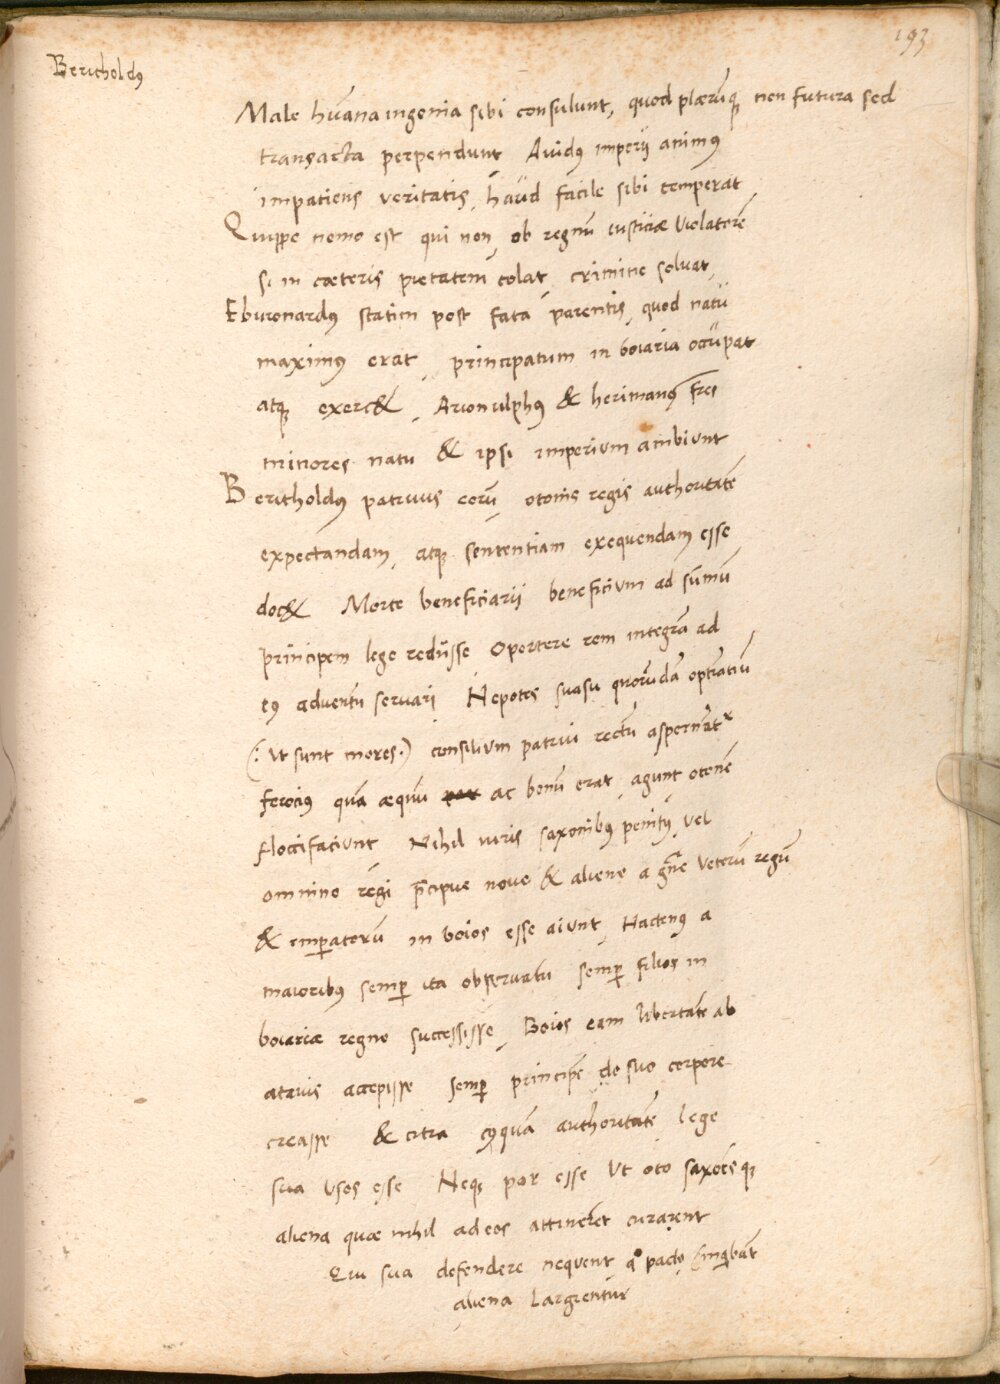 193
Bertholdꝰ
Male hūana ingenia sibi consulunt, quod plærūq̨ non futura sed
transacta perpendunt Auidꝰ imperij animꝰ
impatiens veritatis, haud facile sibi temperat,
Quippe nemo est qui non, ob regnū iusticiæ violatorē
si in cæteris pietatem colat, crimine soluat,
Eburonardꝰ statim post fata parentis, quod natu
maximꝰ erat, principatum in boiaria occupat
atq̨ exerc&, Arionulphꝰ & herimanꝰ fr̄es
minores natu & ipsi imperium ambiunt
Bertholdus patruus eorū, otonis regis authoritatē
expectandam, atq̨ sententiam exequendam esse
doc& Morte beneficiarij beneficium ad sūmū
principem lege redijsse Oportere rem integrā ad
eꝰ adventū servari Nepotes suasu quorūdā optimatiū
(: ut sunt mores :) consilium patrui rectū aspernāt᷑
ferociꝰ quā æquū ac bonū erat, agunt otonē
floccifaciunt Nihil iuris saxonibꝰ penitꝰ, vel
omnino regi p̄cipue nouo & alieno a gn̄e veterū regū
& imꝑatorū in boios esse aiunt, Hactenꝰ a
maioribꝰ semꝑ ita observatū semꝑ filios in
boiariæ regno successisse, Boios eam libertatē ab
atauis accepisse semꝑ principē de suo corpore
creasse & citra cꝰquā authoritatē lege
sua usos esse Neq̨ por esse ut oto saxoēsq̨
aliena quæ nihil ad eos attineret curarent
Qui sua defendere nequent qͦ pacto
aliena largientur